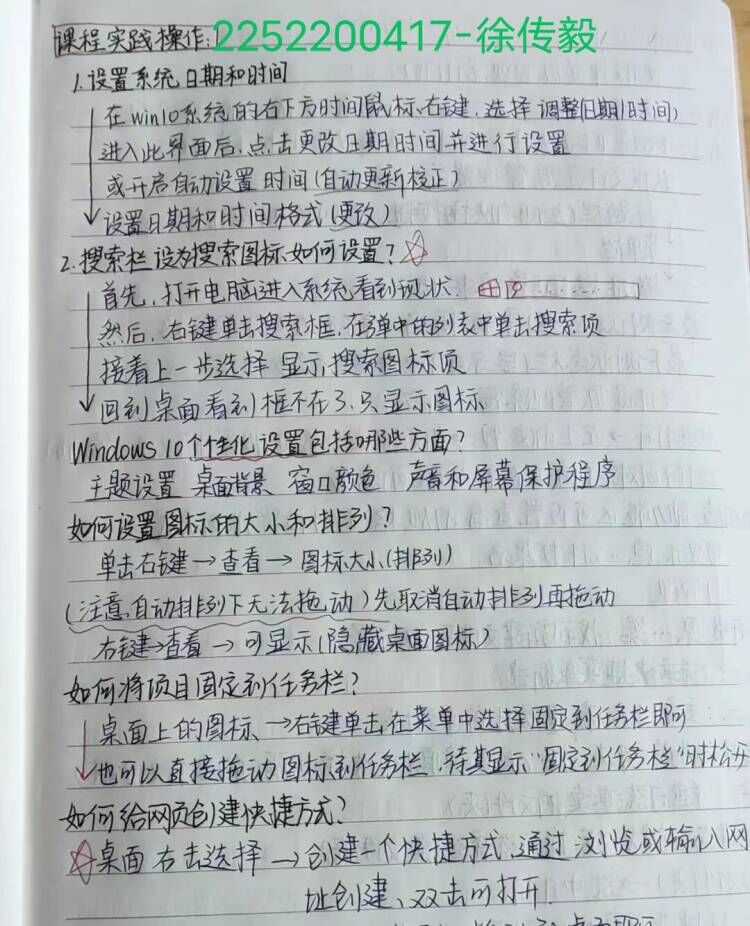 课程实践操作: 2252200417-徐传毅
1.设置系统日期和时间
在win10系统的右下方时间鼠标右键,选择调整(日期/时间)
进入此界面后,点击更改日期时间并进行设置
或开启自动设置时间(自动更新校正)
设置日期和时间格式(更改)
2.搜索栏设为搜索图标如何设置?
首先,打开电脑进入系统看到现状.
然后,右键单击搜索框,在弹中的列表中单击搜索项
接着上一步选择 显示搜索图标项
回到桌面看到框不在了,只显示图标
Windows 10个性化设置包括哪些方面?
主题设置 桌面背景 窗口颜色 声音和屏幕保护程序
如何设置图标的大小和排列?
单击右键→查看→图标大小(排列)
(注意,自动排列下无法拖动)先取消自动排列再拖动
右键→查看→可显示(隐藏桌面图标)
如何将项目固定到任务栏?
桌面上的图标→右键单击,在菜单中选择固定到任务栏即可
也可以直接拖动图标到任务栏,待其显示"固定到任务栏"时松开
如何给网页创建快捷方式?
桌面右击选择→创建一个快捷方式,通过浏览或输入网
址创建、双击可打开.